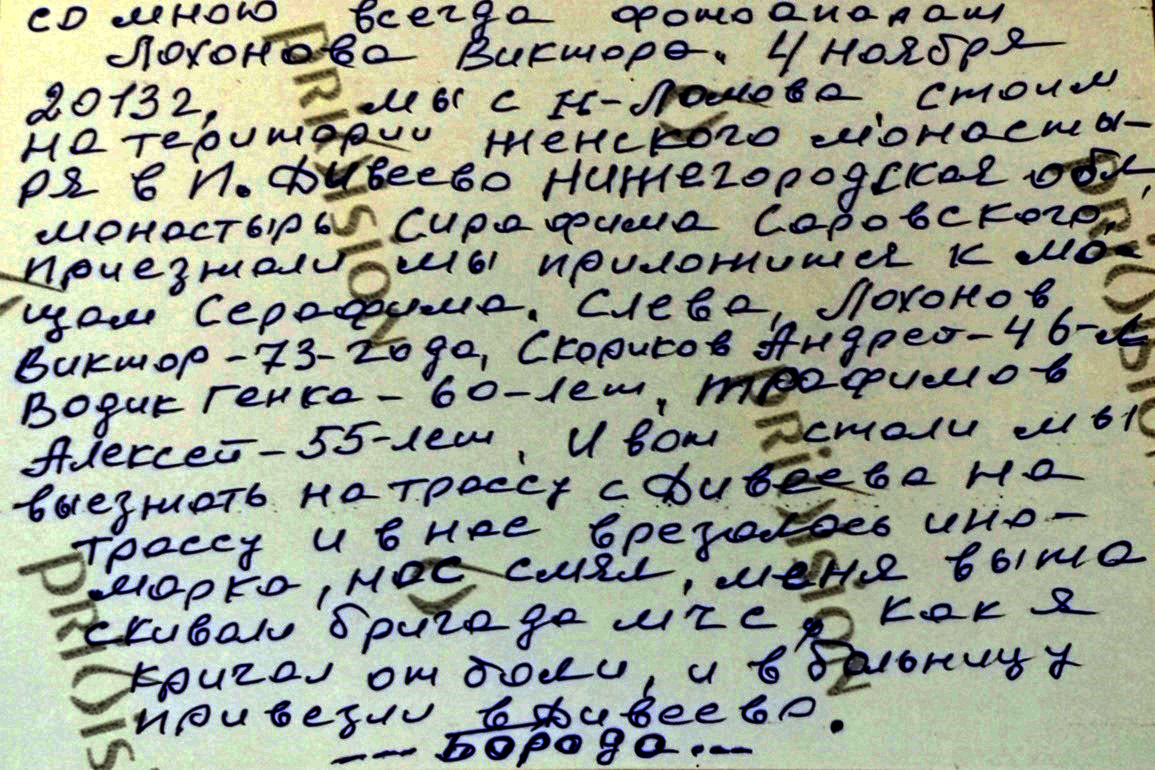 со мною всегда фотоапарат
Лохонова Виктора. 4 ноября
2013г, мы с Н-Ломова стоим
на територии женского монасты-
ря в П. Дивеево Нижегородская обл,
монастырь Сирафима Саровского,
приезжали мы приложится к мо-
щам Серафима. Слева, Лохонов
Виктор-73-года, Скориков Андрей-46-л
Водик Генка - 60-лет, Трафимов
Алексей-55-лет, И вот стали мы
выезжать на трассу с Дивеева на
трассу и в нас врезалось ино-
марка, нас смял, меня выта
скивали бригада мчс, как я
кричал от боли, и в больницу
привезли в Дивеево.
--- Борода ---
PRIVISION
PRIVISION
PRIVISION
PRIVISION